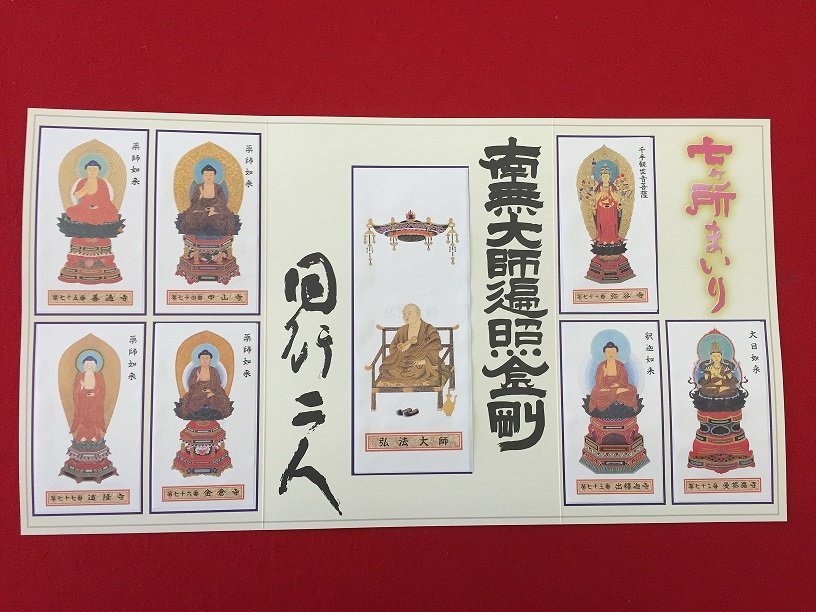 七ヶ所まいり
千手観世音菩薩
第七十一番 弥谷寺
大日如来
第七十二番 曼荼羅寺
釈迦如来
第七十三番 出釋迦寺
南無大師遍照金剛
弘法大師
同行二人
薬師如来
第七十四番 甲山寺
薬師如来
第七十五番 善通寺
薬師如来
第七十六番 金倉寺
薬師如来
第七十七番 道隆寺